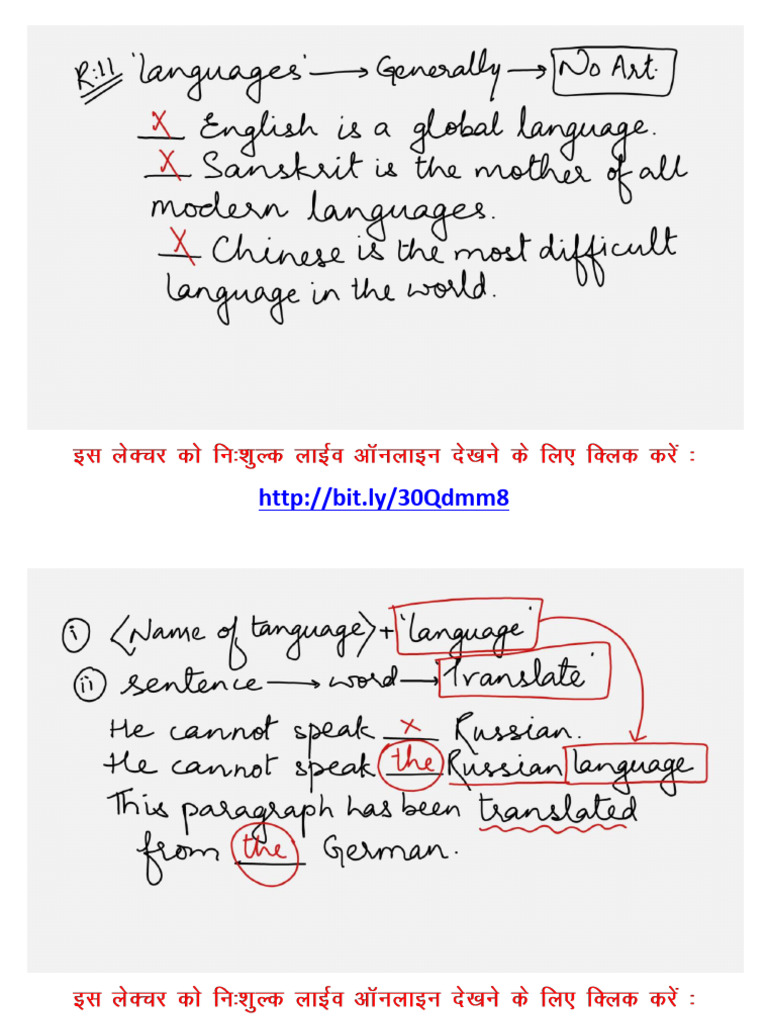 R:11 'languages' → Generally → No Art.
x English is a global language.
x Sanskrit is the mother of all
modern languages.
x Chinese is the most difficult
language in the world.
इस लेक्चर को निःशुल्क लाईव ऑनलाइन देखने के लिए क्लिक करें :
http://bit.ly/30Qdmm8
i <Name of language> + 'language'
ii sentence → word → 'Translate'
He cannot speak x Russian.
He cannot speak the Russian language
This paragraph has been translated
from the German.
इस लेक्चर को निःशुल्क लाईव ऑनलाइन देखने के लिए क्लिक करें :